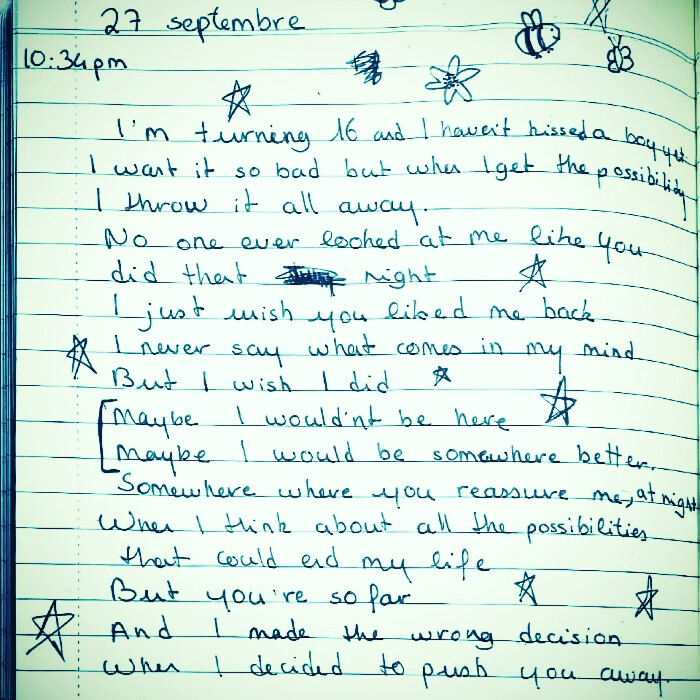 27 septembre
10:34pm
I'm turning 16 and I haven't kissed a boy yet
I want it so bad but when I get the possibility
I throw it all away.
No one ever looked at me like you
did that night
I just wish you liked me back
I never say what comes in my mind
But I wish I did
Maybe I would'nt be here
Maybe I would be somewhere better.
Somewhere where you reassure me, at night
When I think about all the possibilities
that could end my life
But you're so far
And I made the wrong decision
When I decided to push you away.